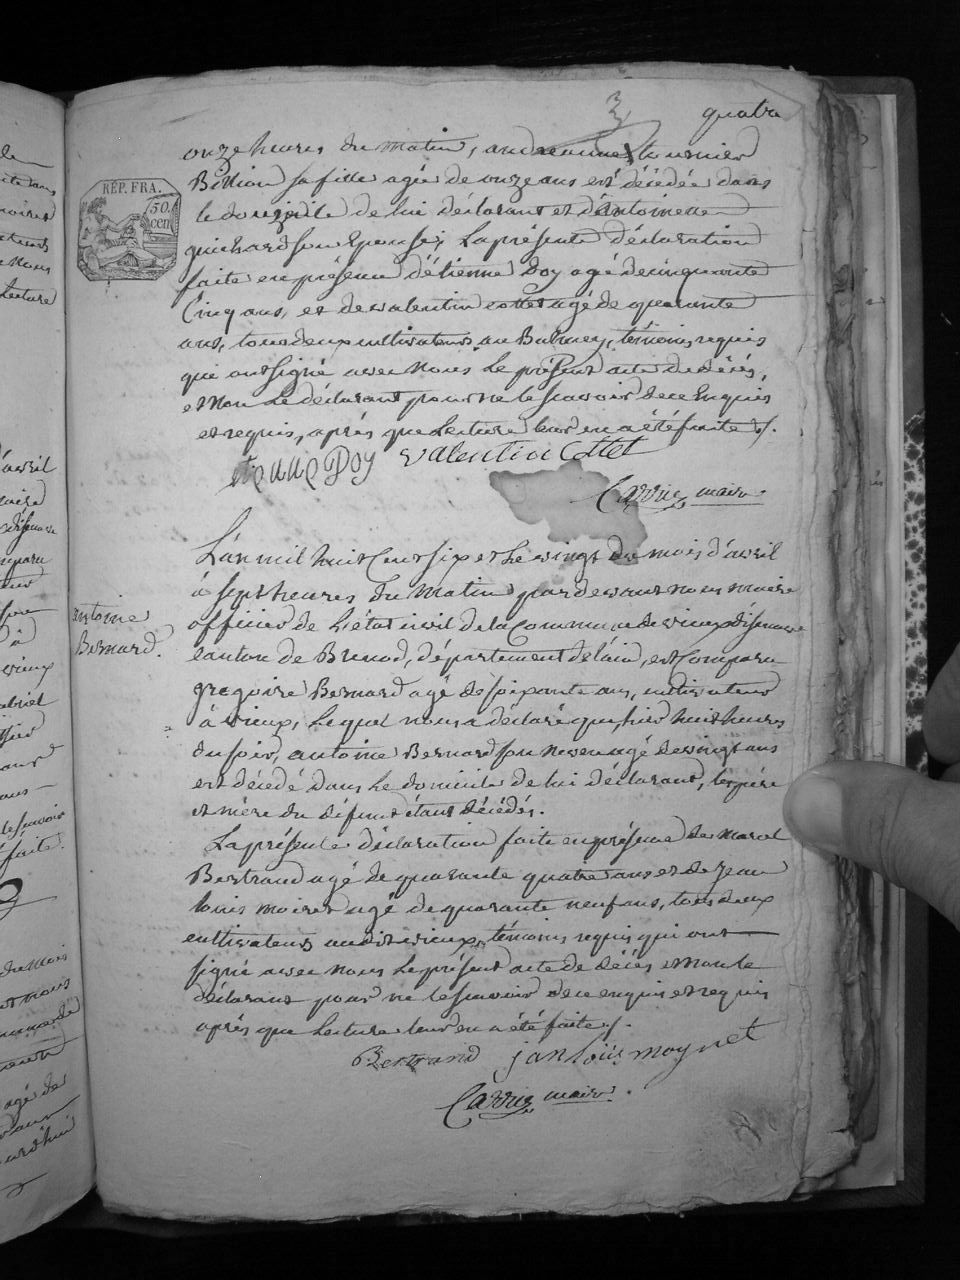 3 quatre
onze heures du matin, andreanne tournier
Billion sa fille agée de onze ans est décédée dans
le domicile de lui déclarant et d'antoinette
guichard son Epouse; La présente déclaration
faite en présence d'étienne Doy agé de cinquante
Cinq ans, et de valentin cottet agé de quarante
ans, tous deux cultivateurs au Balmey, témoins requis
qui ont signé avec Nous Le présent acte de décès,
et Non Le déclarant pour ne le scavoir de ce Enquis
et requis, après que Lecture leur en a été faite ./.
RÉP. FRA.
50.
cen
etienne Doy valentin Cottet
Carrier maire
L'an mil huit Cent six et Le vingt du mois d'avril
à sept heures du Matin pardevant nous maire
officier de L'état civil de la Commune de vieux d'izenave
canton de Brenod, département de l'ain, est Comparu
antoine
Bernard.
gregoire Bernard agé de soixante ans, cultivateur
à vieux, Lequel nous a déclaré que hier huit heures
du soir, antoine Bernard son neveu agé de vingt ans
est décédé dans Le domicile de lui déclarant, les père
et mère du défunt étant décédés.
La présente déclaration faite en présence de Marcel
Bertrand agé de quarante quatre ans et de Jean
louis moinet agé de quarante neuf ans, tous deux
cultivateurs audit vieux, témoins requis qui ont
signé avec nous Le présent acte de décès et non le
déclarant pour ne le scavoir de ce enquis et requis
après que Lecture leur en a été faite ./.
Bertrand jan louis moynet
Carrier maire.